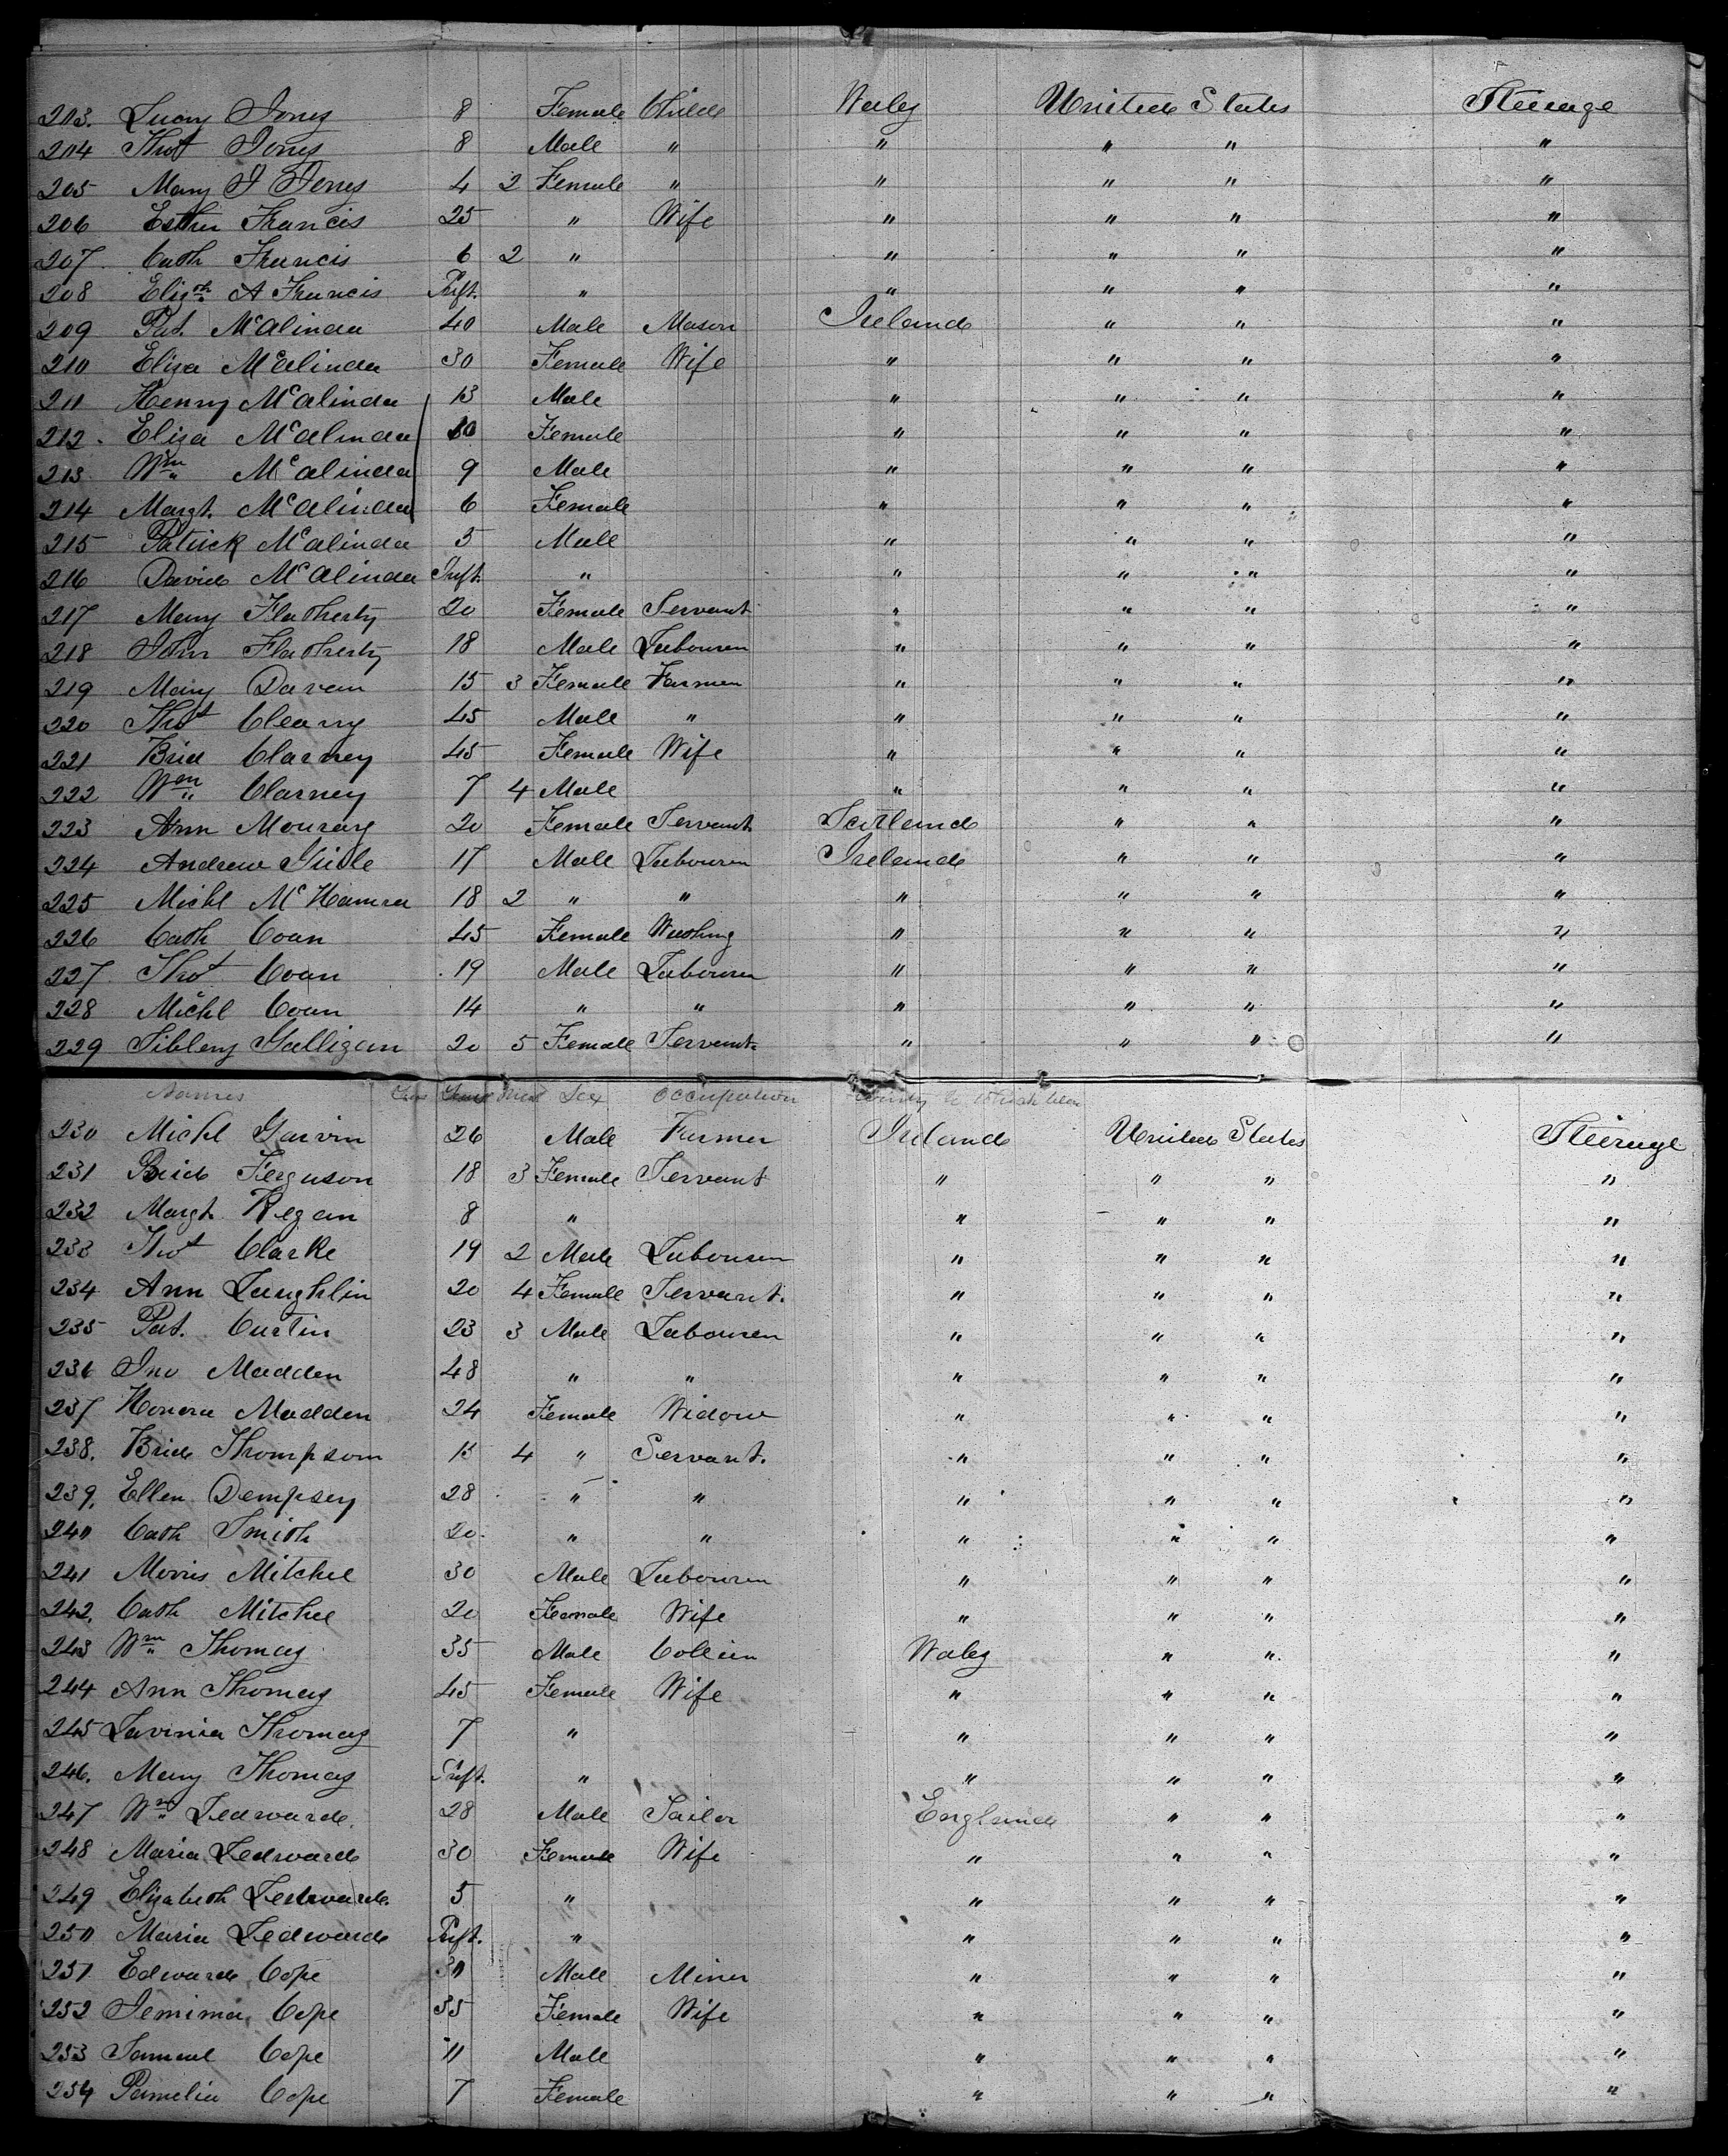 203. Lucy Jones 8 Female Child Wales United States Steerage
204 Thos Jones 8 Male " " " " "
205 Mary J Jones 4 2 Female " " " " "
206 Esther Francis 25 " Wife " " " "
207. Cath Francis 6 2 " " " " "
208 Elizth A Francis Inft. " " " " "
209 Pat. McAlinda 40 Male Mason Ireland " " "
210 Eliza McAlinda 30 Female Wife " " " "
211 Henry McAlinda 13 Male " " " "
212. Eliza McAlinda 10 Female " " " "
213. Wm McAlinda 9 Male " " " "
214 Margt. McAlinda 6 Female " " " "
215 Patrick McAlinda 5 Male " " " "
216 David McAlinda Inft. " " " " "
217 Mary Flatherty 20 Female Servant " " " "
218 John Flatherty 18 Male Labourer " " " "
219 Mary Davan 15 3 Female Farmer " " " "
220 Thos Cleary 45 Male " " " " "
221 Brid Clarney 45 Female Wife " " " "
222 Wm Clarney 7 4 Male " " " "
223 Ann Mouray 20 Female Servant Scotland " " "
224 Andrew 17 Male Labourer Ireland " " "
225 Michl McNamra 18 2 " " " " " "
226 Cath Coan 45 Female Washing " " " "
227. Thos Coan 19 Male Labourer " " " "
228 Michl Coan 14 " " " " " "
229 Sibbeny Galligan 20 5 Female Servant " " " "
Names Sex Occupation Country to which
230 Michl Garvin 26 Male Farmer Ireland United States Steerage
231 Brid Ferguson 18 3 Female Servant " " " "
232 Margt. Regan 8 " " " " "
233 Thos Clarke 19 2 Male Labourer " " " "
234 Ann Laughlin 20 4 Female Servant. " " " "
235 Pat. Curtin 23 3 Male Labourer " " " "
236 Jno Madden 48 " " " " " "
237 Honora Madden 24 Female Widow " " " "
238. Brid Thompson 15 4 " Servant. " " " "
239. Ellen Dempsey 28 " " " " " "
240 Cath Smith 20 " " " " " "
241 Morris Mitchel 30 Male Labourer " " " "
242. Cath Mitchel 20 Female Wife " " " "
243 Wm Thomas 35 Male Collier Wales " " "
244 Ann Thomas 45 Female Wife " " " "
245 Lavinia Thomas 7 " " " " "
246. Mary Thomas Inft. " " " " "
247 Wm Ledward 28 Male Tailor England " " "
248 Maria Ledward 30 Female Wife " " " "
249 Elizabeth Ledward 5 " " " " "
250 Maria Ledward Inft. " " " " "
251 Edward Cope 30 Male Miner " " " "
252 Jemima Cope 35 Female Wife " " " "
253 Samuel Cope 11 Male " " " "
254 Pamelia Cope 7 Female " " " "